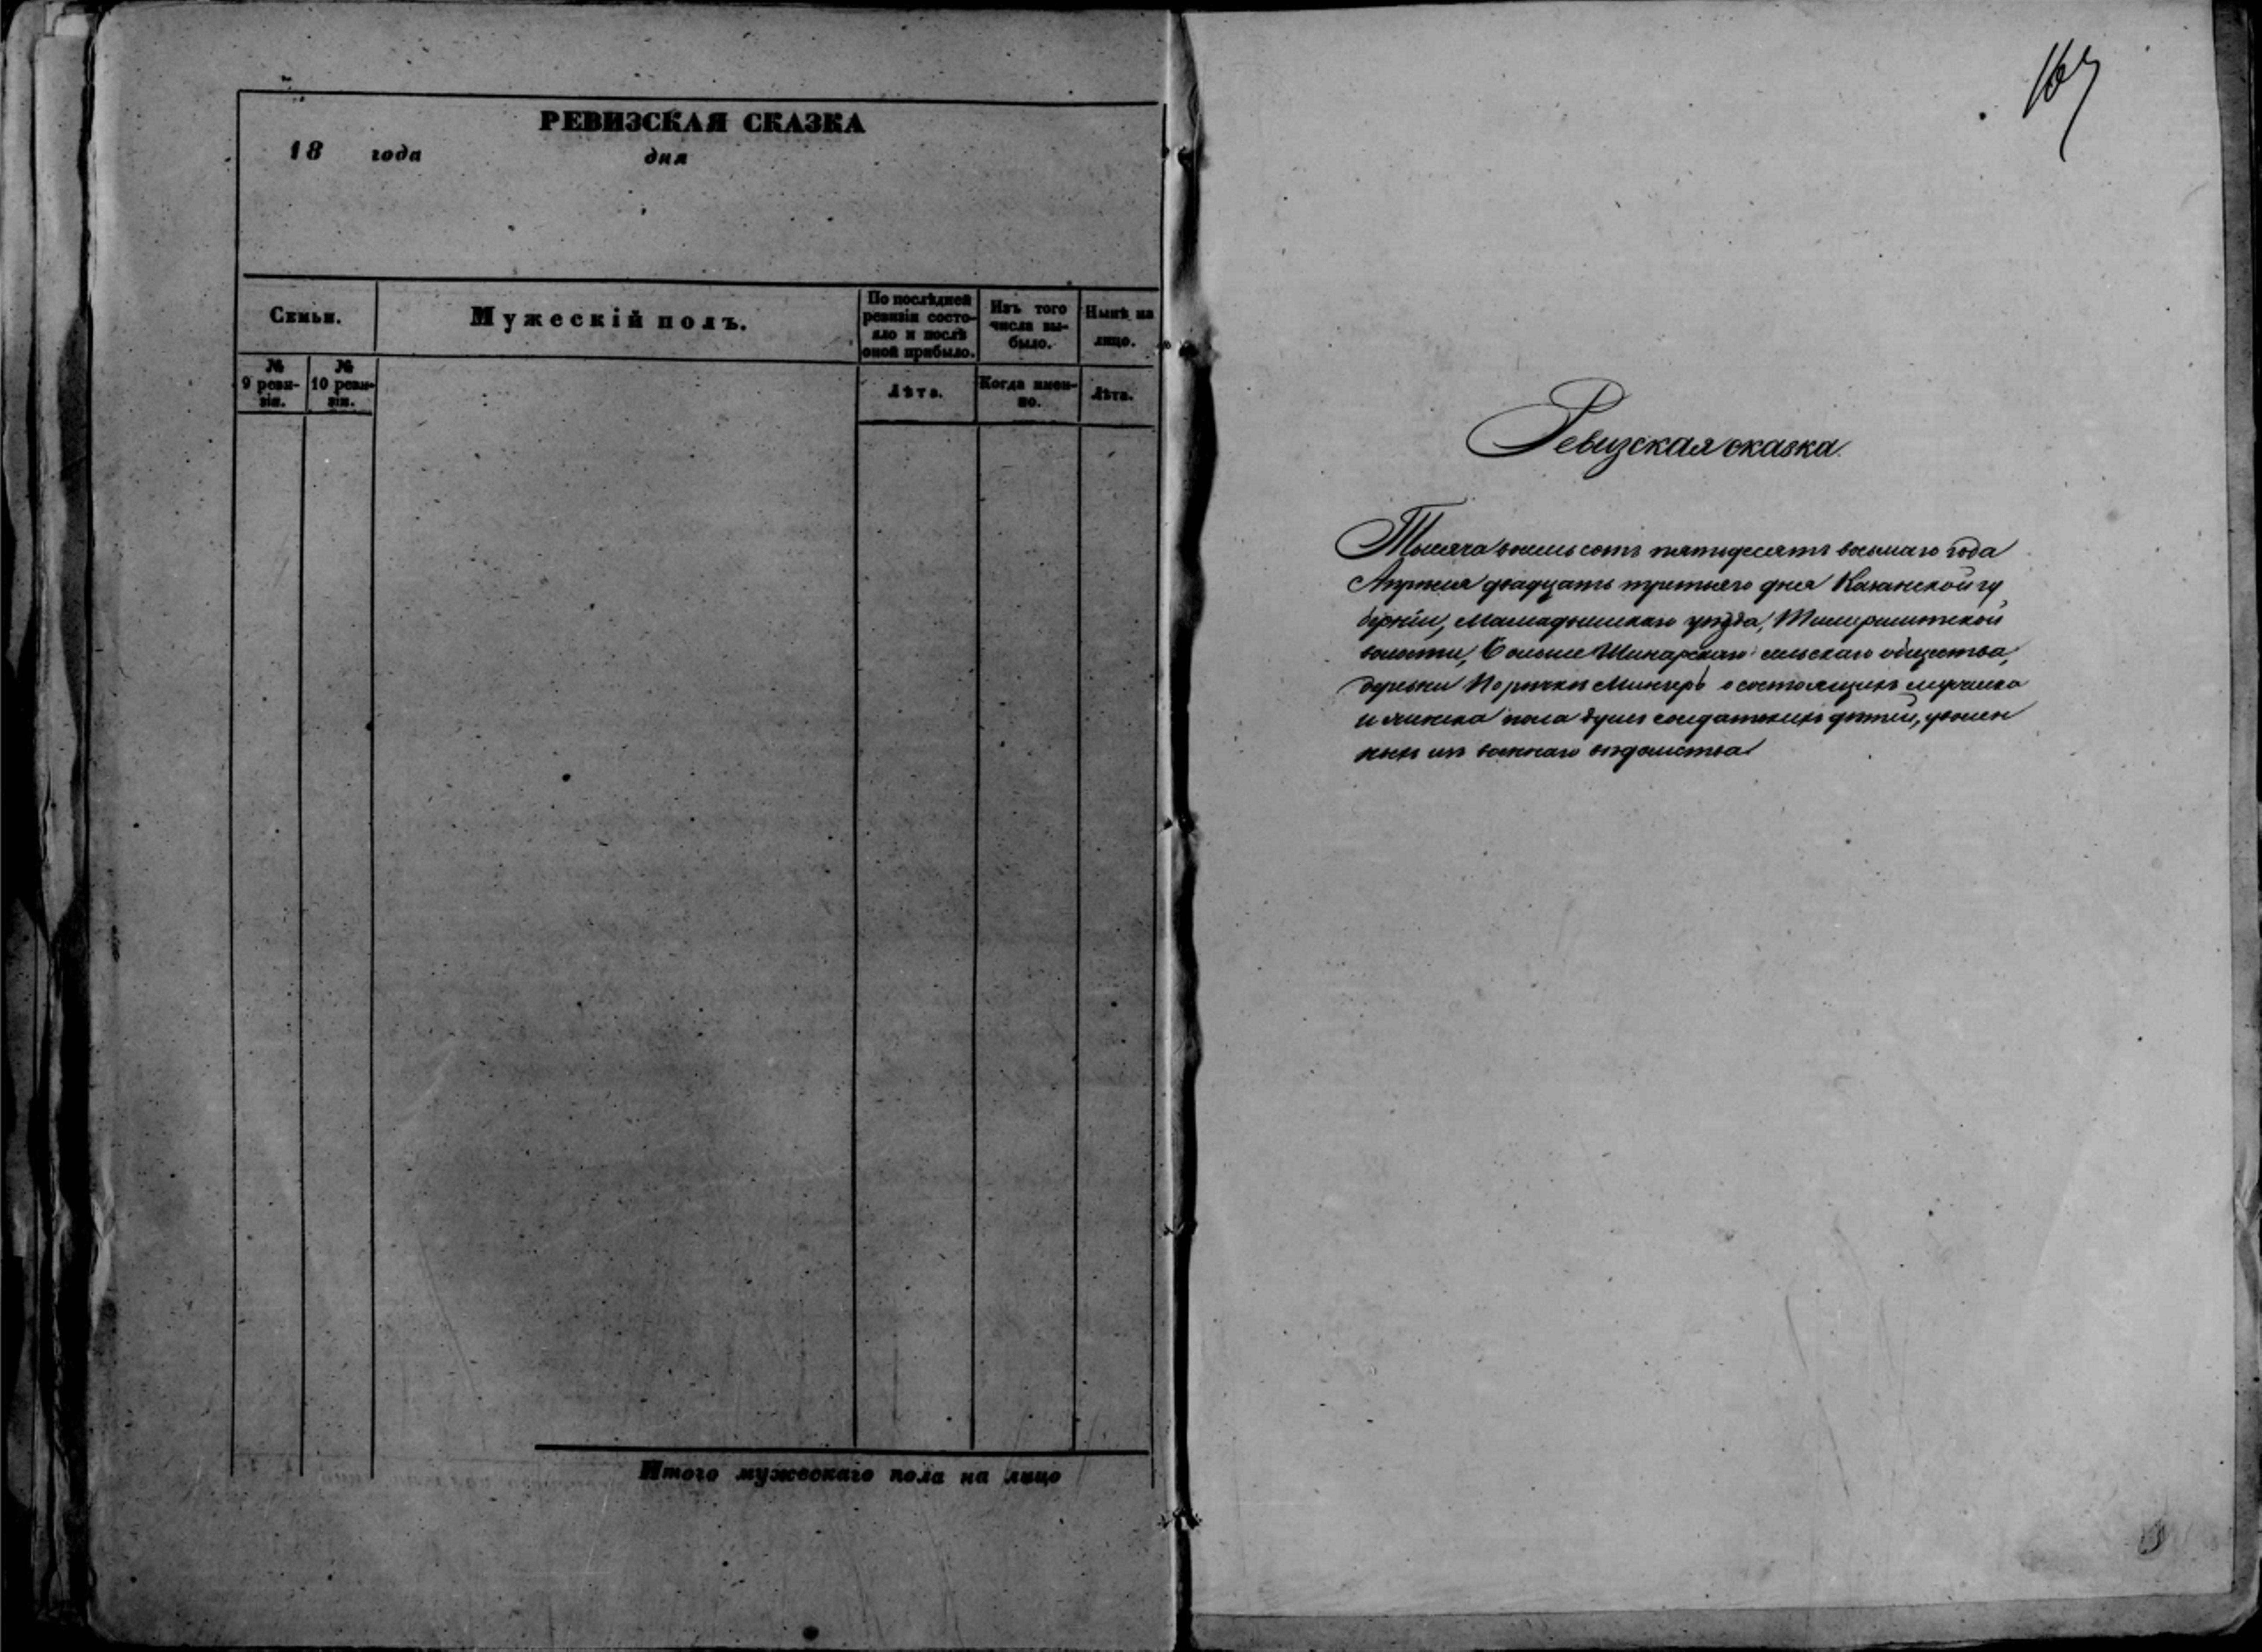 РЕВИЗСКАЯ СКАЗКА
18 года дня
Семьи.
Мужескій полъ.
По послѣдней
ревизіи состо-
яло и послѣ
оной прибыло.
Изъ того
числа вы-
было.
Нынѣ на
лицо.
№
9 реви-
зіи.
№
10 реви-
зіи.
Лѣта.
Когда имен-
но.
Лѣта.
Итого мужескаго пола на лицо
167
Ревизская сказка.
Тысяча восемь сотъ пятьдесятъ восьмаго года
Апрѣля двадцать третьяго дня Казанской гу
берніи, Мамадышскаго уѣзда,
волости, Больше Шинарскаго сельскаго общества,
деревни Порѣчки Мингеръ о состоящихъ мужеска
и женска пола душъ солдатскихъ дѣтей, уволен
ныхъ изъ военнаго вѣдомства